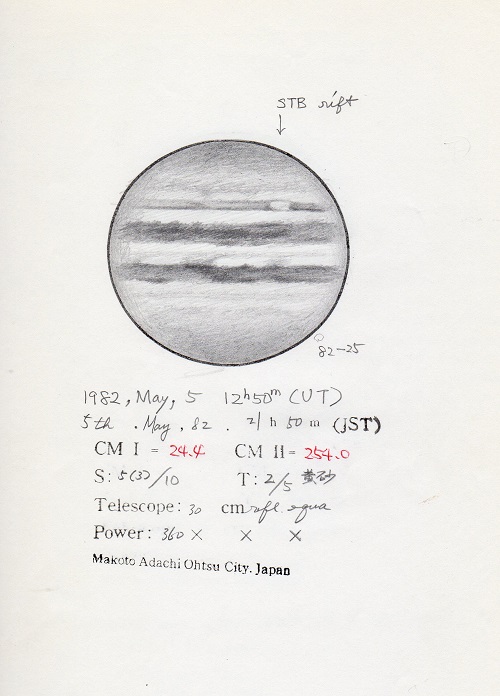 STB rift
↓
82-25
1982, May, 5 12h50m (UT)
5th . May, 82 . 21 h 50 m (JST)
CM I = 24.4 CM II= 254.0
S: 5(3)/10 T: 2/5 黄砂
Telescope: 30 cm refl. equa
Power: 360 × × ×
Makoto Adachi Ohtsu City. Japan